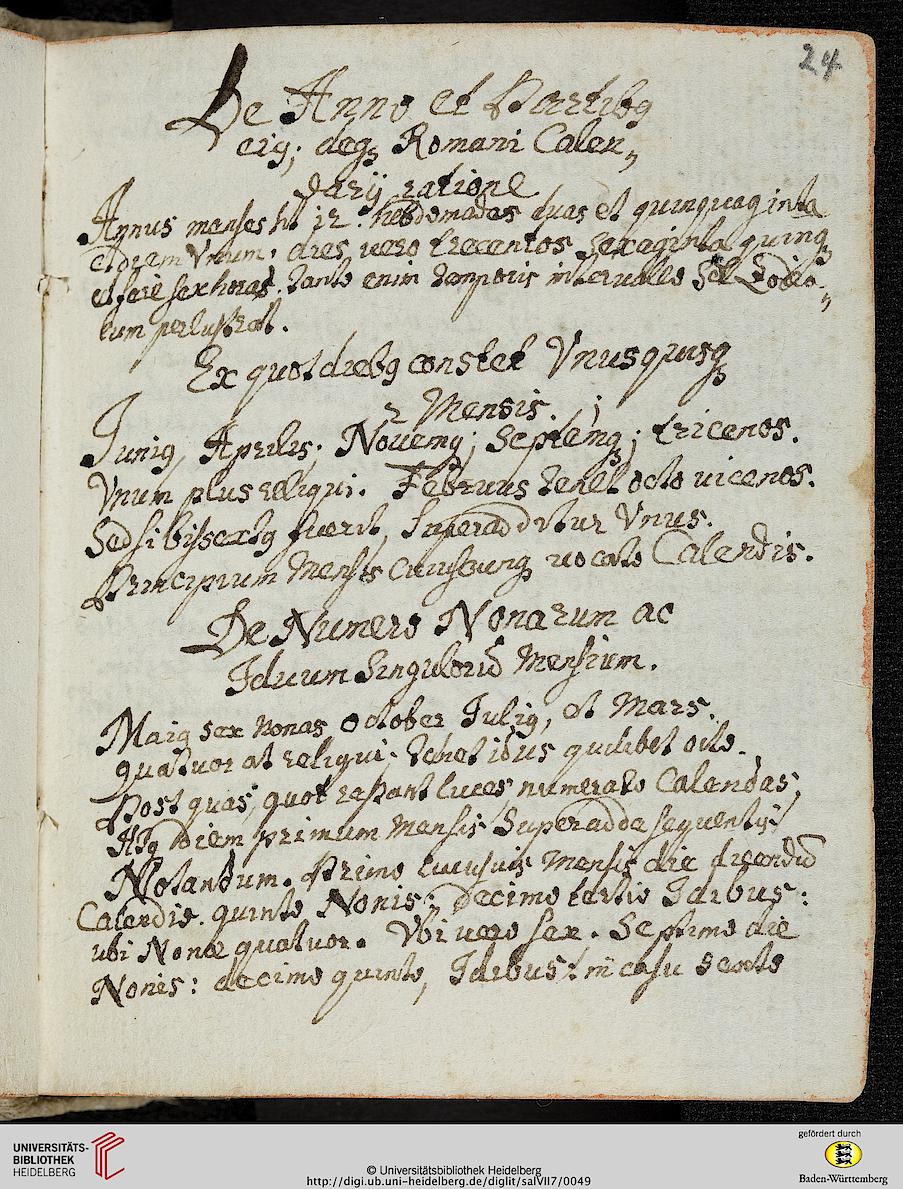 24
De Anno et Partibꝰ
eiꝰ, deqꝫ Romani Calen„
darij ratione
Annus menses ht 12. hebdomadas duas et quinquaginta
et diem Vnum, dies vero trecentos sexaginta quinqꝫ
et ferè sex horas. Tanto enim temporis interuallo Sol Zodia„
cum perlustrat.
Ex quot diebꝰ constet Vnusquisqꝫ
Mensis.
Iuniꝰ, Aprilis, Nouemqꝫ, Septemqꝫ, tricenos.
Vnum plus reliqui. Februus tenet octo uicenos.
Sed si bissextꝰ fuerit, superadditur Vnus.
Principium Mensis Cuiuscunqꝫ uocato Calendis.
De Numero Nonarum ac
Iduum Singulorū Mensium.
Maiꝰ sex nonas october Iuliꝰ, et Mars.
quatuor at reliqui. tenet idus quilibet octo.
Post quas, quot restant luces numerato Calendas,
Atqꝫ diem primum mensis Superadde sequentis
Notandum. Primo cuiusuis mensis die dicendū
Calendis. quinto Nonis: Decimo tertio Idibus:
ubi Nonæ quatuor. Vbi uero sex. Septimo die
Nonis: decimo quinto, Idibus: in casu sexto
UNIVERSITÄTS-
BIBLIOTHEK
HEIDELBERG
© Universitätsbibliothek Heidelberg
http://digi.ub.uni-heidelberg.de/diglit/salVII7/0049
gefördert durch
Baden-Württemberg